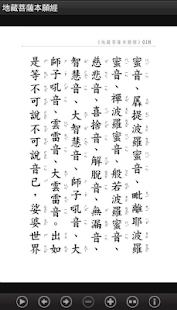 地藏菩薩本願經
《地藏菩薩本願經》018
蜜音、羼提波羅蜜音、毗離耶波羅
蜜音、禪波羅蜜音、般若波羅蜜音、
慈悲音、喜捨音、解脫音、無漏音、
智慧音、大智慧音、師子吼音、大
師子吼音、雲雷音、大雲雷音。出如
是等不可說不可說音已，娑婆世界